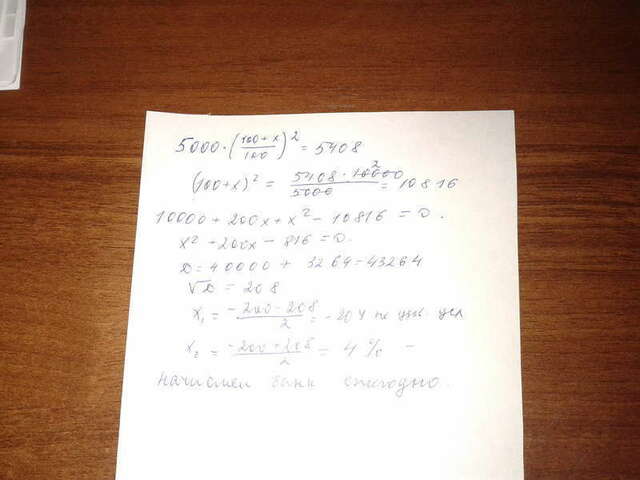 5000·((100+x)/100)^2 = 5408
(100+x)^2 = (5408·10000)/5000 2 = 10816
10000+200x+x^2-10816=0.
x^2+200x-816=0.
D=40000+3264=43264
√D=208
x₁=(-200-208)/2=-204 не удов. усл
x₂=(-200+208)/2=4% -
начислял банк ежегодно.